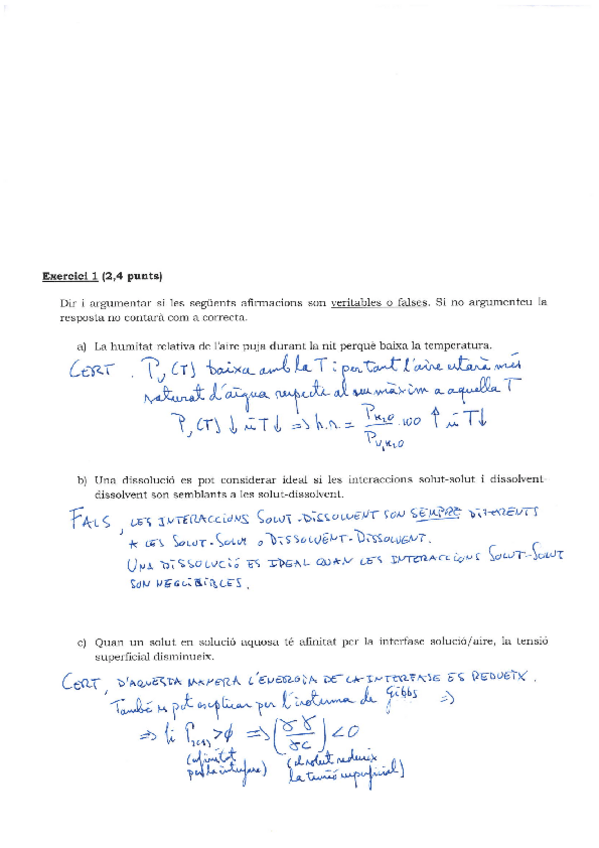 Exercici 1 (2,4 punts)
Dir i argumentar si les següents afirmacions son veritables o falses. Si no argumenteu la
resposta no contarà com a correcta.
a) La humitat relativa de l'aire puja durant la nit perquè baixa la temperatura.
CERT. Pv(T) baixa amb la T i per tant l'aire estarà més
saturat d'aigua respecte al seu màxim a aquella T
Pv(T) ↓ si T↓ => h.r. = P_H2O / Pv,H2O · 100 ↑ si T↓
b) Una dissolució es pot considerar ideal si les interaccions solut-solut i dissolvent-
dissolvent son semblants a les solut-dissolvent.
FALS, LES INTERACCIONS SOLUT-DISSOLVENT SON SEMPRE DIFERENTS
A LES SOLUT-SOLUT O DISSOLVENT-DISSOLVENT.
UNA DISSOLUCIÓ ES IDEAL QUAN LES INTERACCIONS SOLUT-SOLUT
SON NEGLIGIBLES.
c) Quan un solut en solució aquosa té afinitat per la interfase solució/aire, la tensió
superficial disminueix.
CERT, D'AQUESTA MANERA L'ENERGIA DE LA INTERFASE ES REDUEIX.
També es pot explicar per l'isoterma de Gibbs =>
=> Si >0 => (∂γ/∂c) <0
(afinitat (el solut redueix
per la interfase) la tensió superficial)